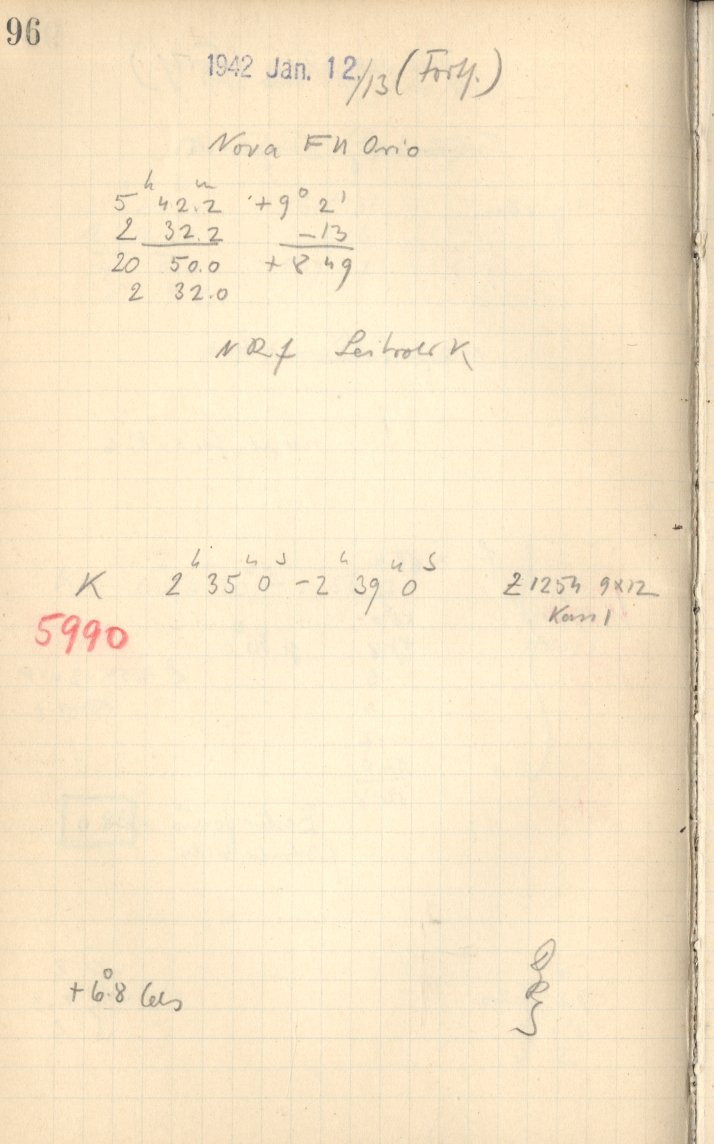 96
1942 Jan. 12./13 (Forts.)
Nova FU Orio
5ʰ 42.2ᵐ +9° 2'
2 32.2 -13
20 50.0 +8 49
2 32.0
K 2ʰ 35ᵐ 0ˢ - 2ʰ 39ᵐ 0ˢ Z 1254 9x12
Kass 1
5990
+6°.8 Cels